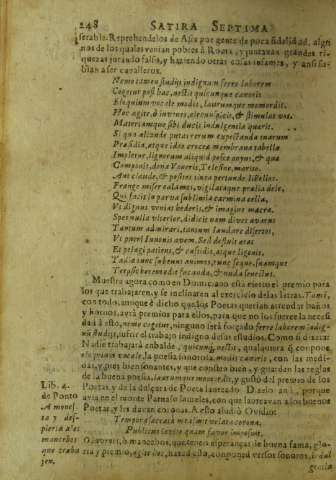 248 SATIRA SEPTIMA
serable. Reprehendelos de Asia por gente de poca fidelidad, algu
nos de los quales venian pobres à Roma, y juntavan grandes ri-
quezas jurando falso, y haziendo otras cosas infames, y ansi ha-
zian a ser cavalleros.
Nemo tamen studijs indignum ferre laborem
Cogetur post hac, nectit quicunque canoris
Eloquium vocale modis, laurumque momordit.
Hoc agite, ô iuvenes, circunspicit, & stimulat vos,
Materiamque sibi ducis indulgentia quærit.
Si qua aliunde putas rerum expectanda tuarum
Præsidia, atque ideo croceæ membrana tabellæ
Impletur, lignorum aliquid posce ocyus, & quæ
Componis, dona Veneris, Telesine, marito.
Aut claude, & positos tinea pertunde libellos.
Frange miser calamos, vigilataque prælia dele,
Qui facis in parva sublimia carmina cella,
Vt dignus venias hederis, & imagine macra.
Spes nulla vlterior, didicit iam dives avarus
Tantum admirari, tantum laudare disertos,
Vt pueri Iunonis avem. Sed defluit ætas
Et pelagi patiens, & cassidis, atque ligonis.
Tædia tunc subeunt animos, tunc seque, suamque
Terpsichoren odit facunda, & nuda senectus.
Muestra agora como en Domiciano esta cierto el premio para
los que trabajaren, y se inclinaren al exercicio delas letras.
con todo, aunque è dicho que los Poetas querian atender baños
y hornos, avrà premios para ellos, para que no los fuerce la necesi
dad à esto, nemo cogetur, ninguno serà forçado ferre laborem indig-
num studijs, sufrir el trabajo indigno de sus estudios. Como si dixera:
Nadie trabajarà enbalde, quicunque, nectit, qualquiera q compone,
eloquium vocale, la poesia sonorosa, modis canoris, con las medi-
das, y pies bien sonantes, y que consten bien, y guarden las reglas
de la buena poesia, laurumque momordit, y gustò del precio de los
Poetas, y de la dulçura de Poeta laureado. Dizelo ansi, porque
avia en el monte Parnaso laureles, con que laureavan a los buenos
Poetas, y les davan corona. A esto aludiò Ovidio:
Tempora sacrata mea sunt velata corona,
Publicus invito quam favor imposuit.
O juvenes, ò mancebos, que teneis esperanças de buena fama,
que trabajen.
Lib. 4.
de Ponto